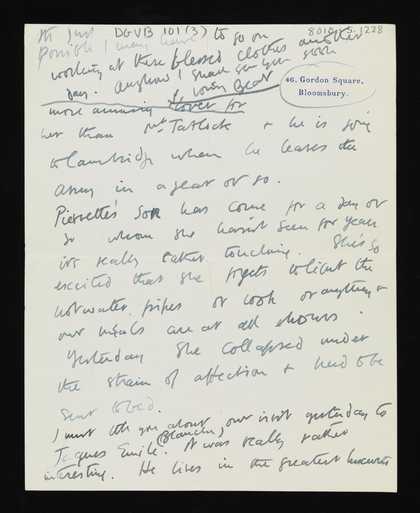 It's just DGVB 101(3) 8010.5.1228
possible I may have to go on
working at these blessed clothes another
day. Anyhow I shall see you soon
46, Gordon Square,
Bloomsbury.
loving Bear
more amusing lover for
her than Mr Tatlock & he is going
to Cambridge when he leaves the
army in a year or so.
Pierrette's son has come for a day or
so whom she hasn't seen for years
it's really rather touching. She's so
excited that she forgets to light the
hotwater pipes or cook or anything &
our meals are at odd hours.
Yesterday she collapsed under
the strain of affection & had to be
sent to bed.
I must tell you about our visit yesterday to
Jacques Emile (Blanche). It was really rather
interesting. He lives in the greatest